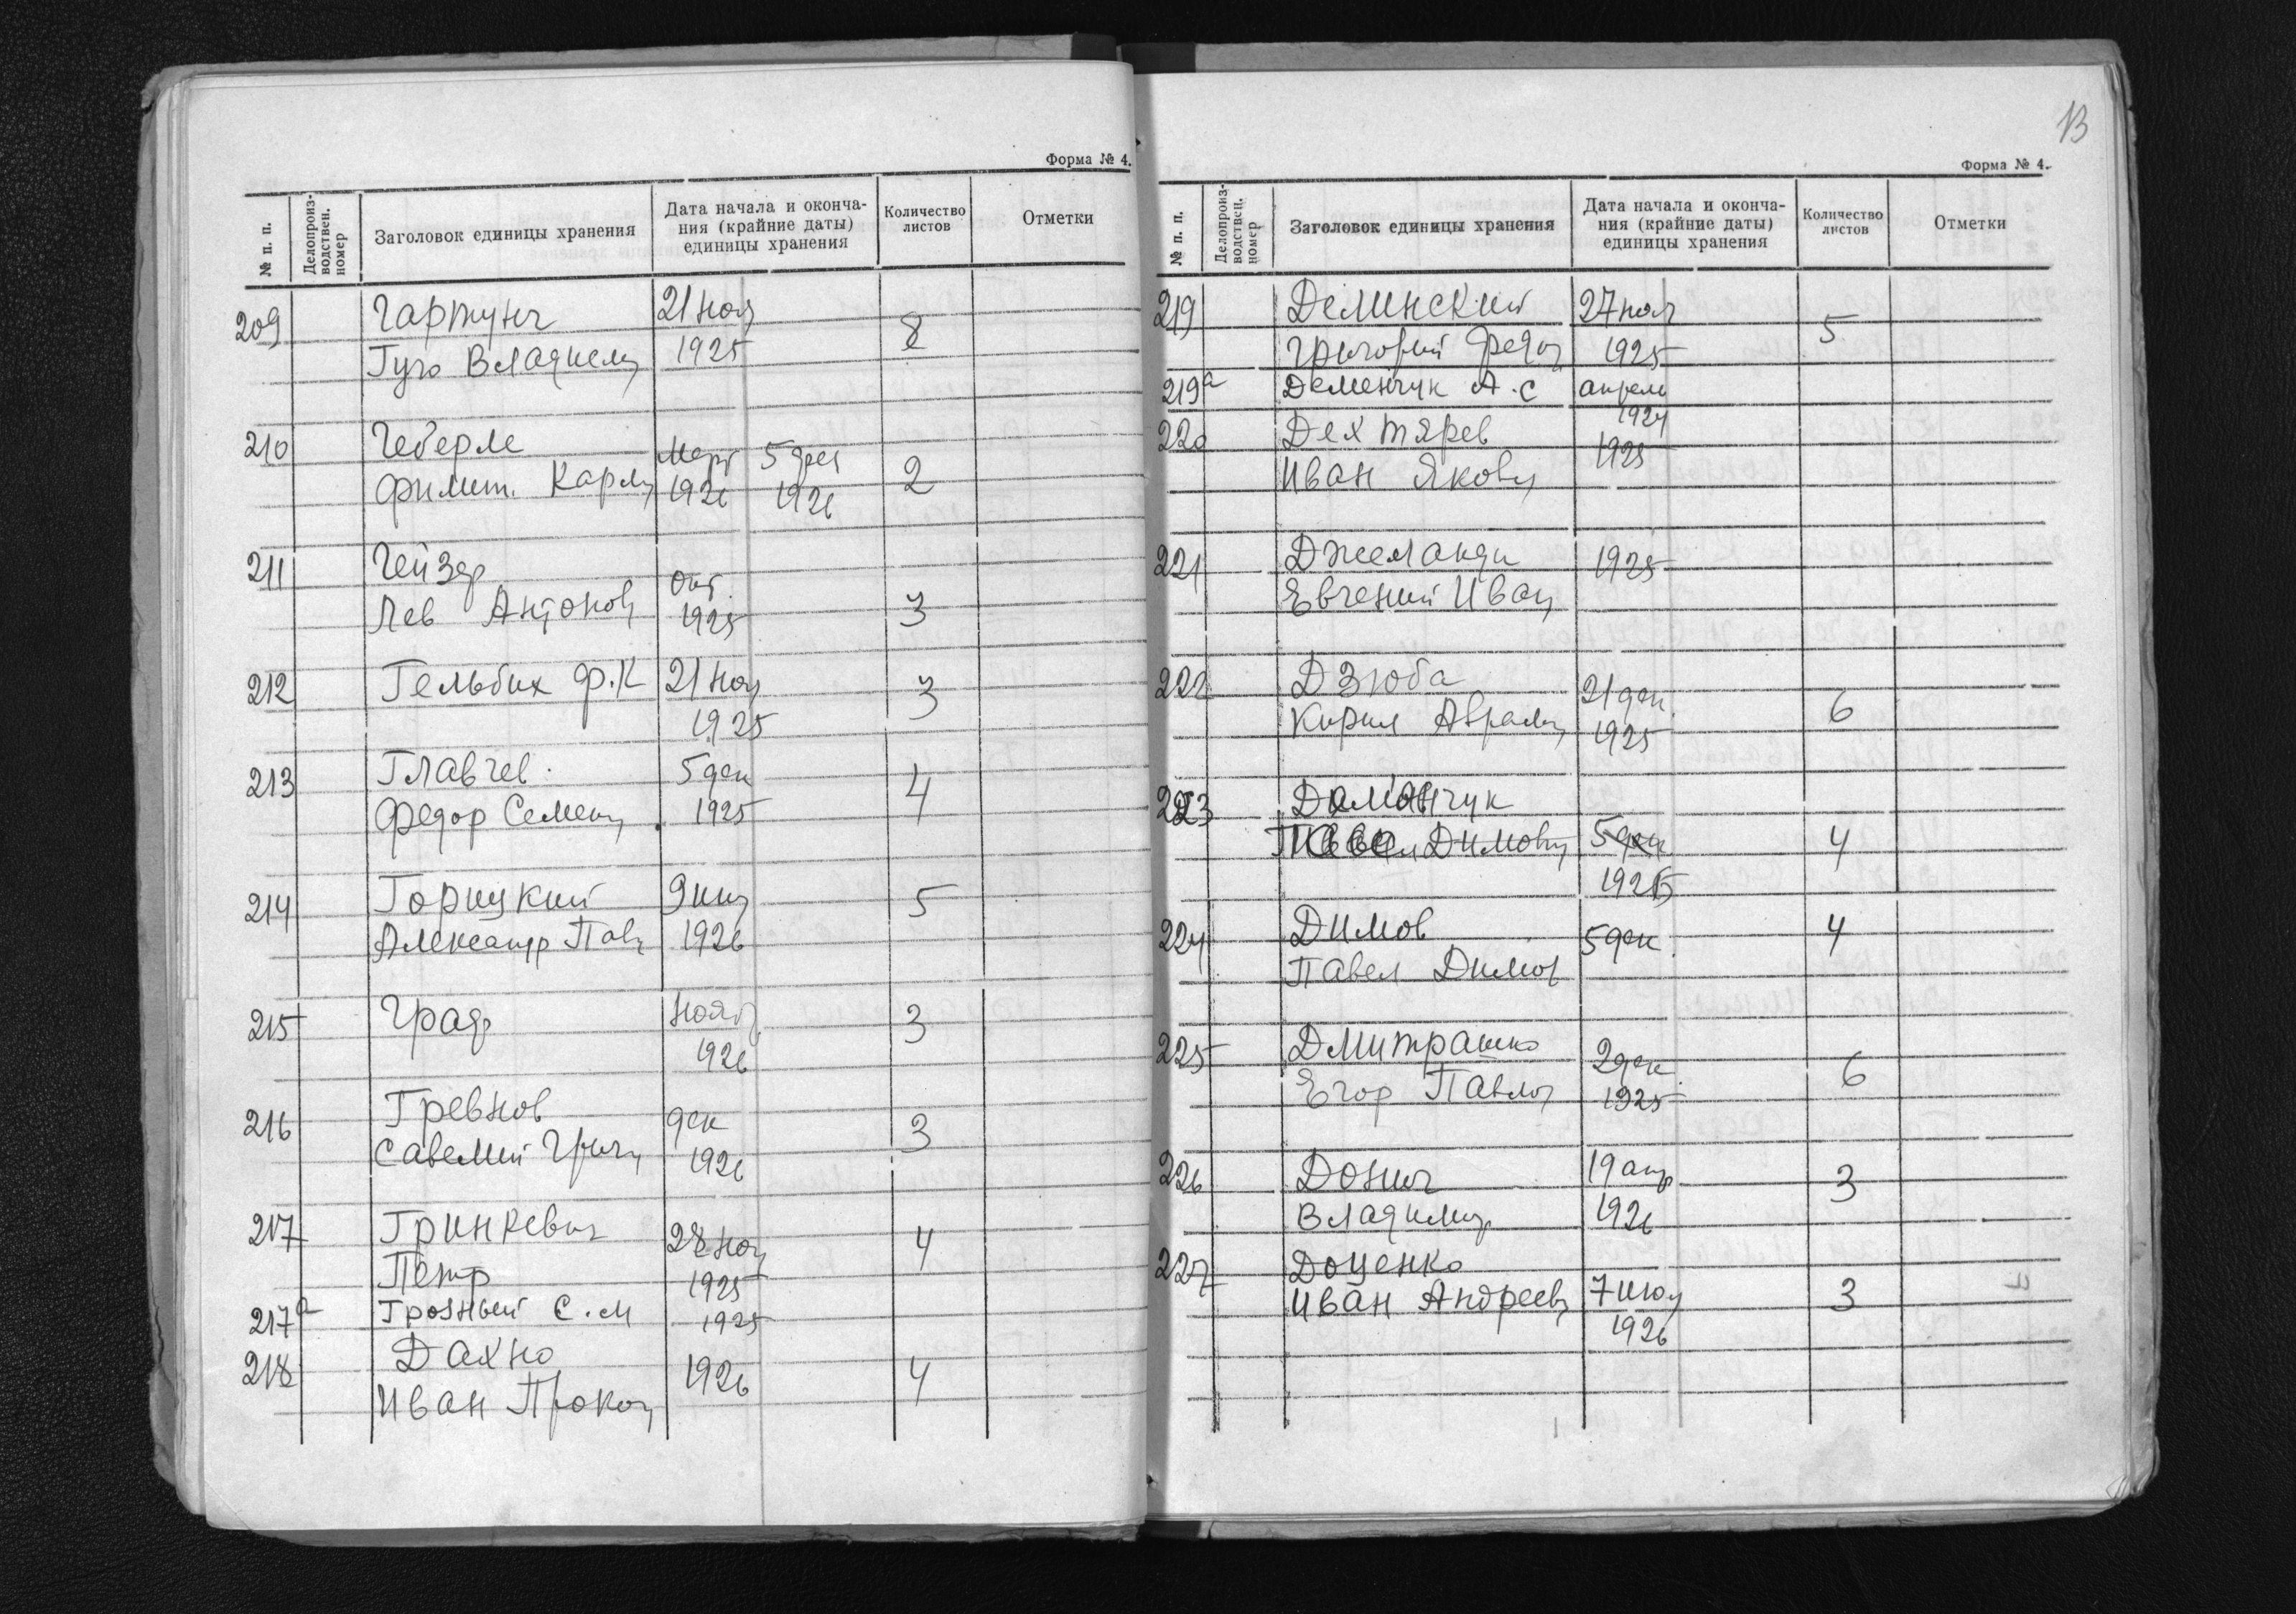 Форма № 4.
№ п. п.
Делопроиз-
водствен.
номер
Заголовок единицы хранения
Дата начала и оконча-
ния (крайние даты)
единицы хранения
Количество
листов
Отметки
209 Гартунг 21 ноя 8
Гуго Владисл 1925
210 Геберле март 5 фев 2
Филип. Карл 1926 1926
211 Гейзер окт. 3
Лев Антонов 1925
212 Гельбих Ф.К 21 ноя 3
1925
213 Главчев 5 дек 4
Федор Семен 1925
214 Горицкий 9 5
Александр Пав 1926
215 Град нояб 3
1926
216 Гревнов дек 3
Савелий Григ 1926
217 Гринкевич 28 ноя 4
Петр 1925
217а Грозный С.М 1925
218 Дахно 1926 4
Иван Прокоп
13
Форма № 4.
№ п. п.
Делопроиз-
водствен.
номер
Заголовок единицы хранения
Дата начала и оконча-
ния (крайние даты)
единицы хранения
Количество
листов
Отметки
219 Делинский 27 ноя 5
Григорий Федор 1925
219а Деменчук А.С апрель
1924
220 Дехтярев 1925
Иван Яковл
221 Джеланди 1925
Евгений Иван
222 Дзюба 21 дек. 6
Кирил Аврам 1925
223 5 дек 4
Димов 1925
224 Димов 5 дек. 4
Павел Димов
225 Дмитрашко 2 дек. 6
Егор Павлов 1925
226 Донич 19 апр 3
Владимир 1926
227 Доценко
Иван Андреев 7 июл 3
1926